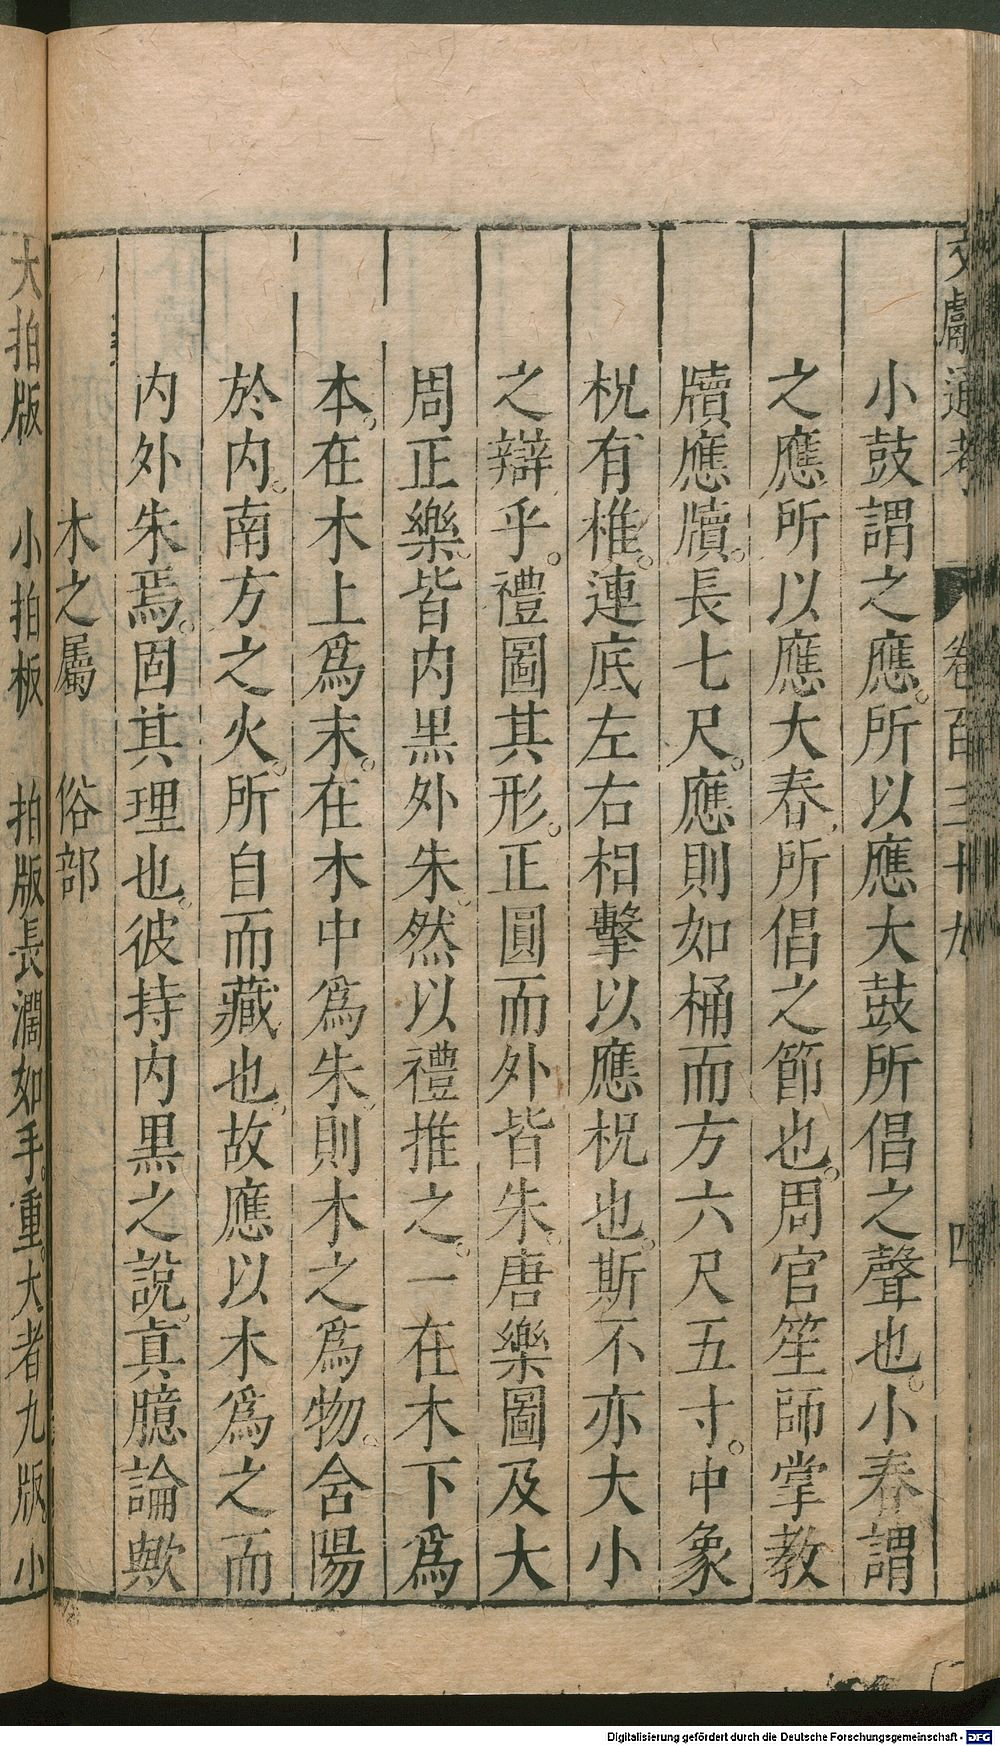 文獻通考 卷百三十九 四
小鼓謂之應。所以應大鼓所倡之聲也。小舂謂
之應所以應大舂所倡之節也。周官笙師掌教
牘應牘。長七尺。應則如桶而方六尺五寸。中象
柷有椎。連底左右相擊以應柷也。斯不亦大小
之辯乎。禮圖其形。正圓而外皆朱。唐樂圖及大
周正樂。皆内黒外朱。然以禮推之。一在木下爲
本。在木上爲末。在木中爲朱。則木之爲物。含陽
於内。南方之火。所自而藏也。故應以木爲之而
内外朱焉。固其理也。彼持内黒之說。真臆論歟
木之屬 俗部
大拍版 小拍板 拍版長濶如手。重。大者九版。小
Digitalisierung gefördert durch die Deutsche Forschungsgemeinschaft - DFG